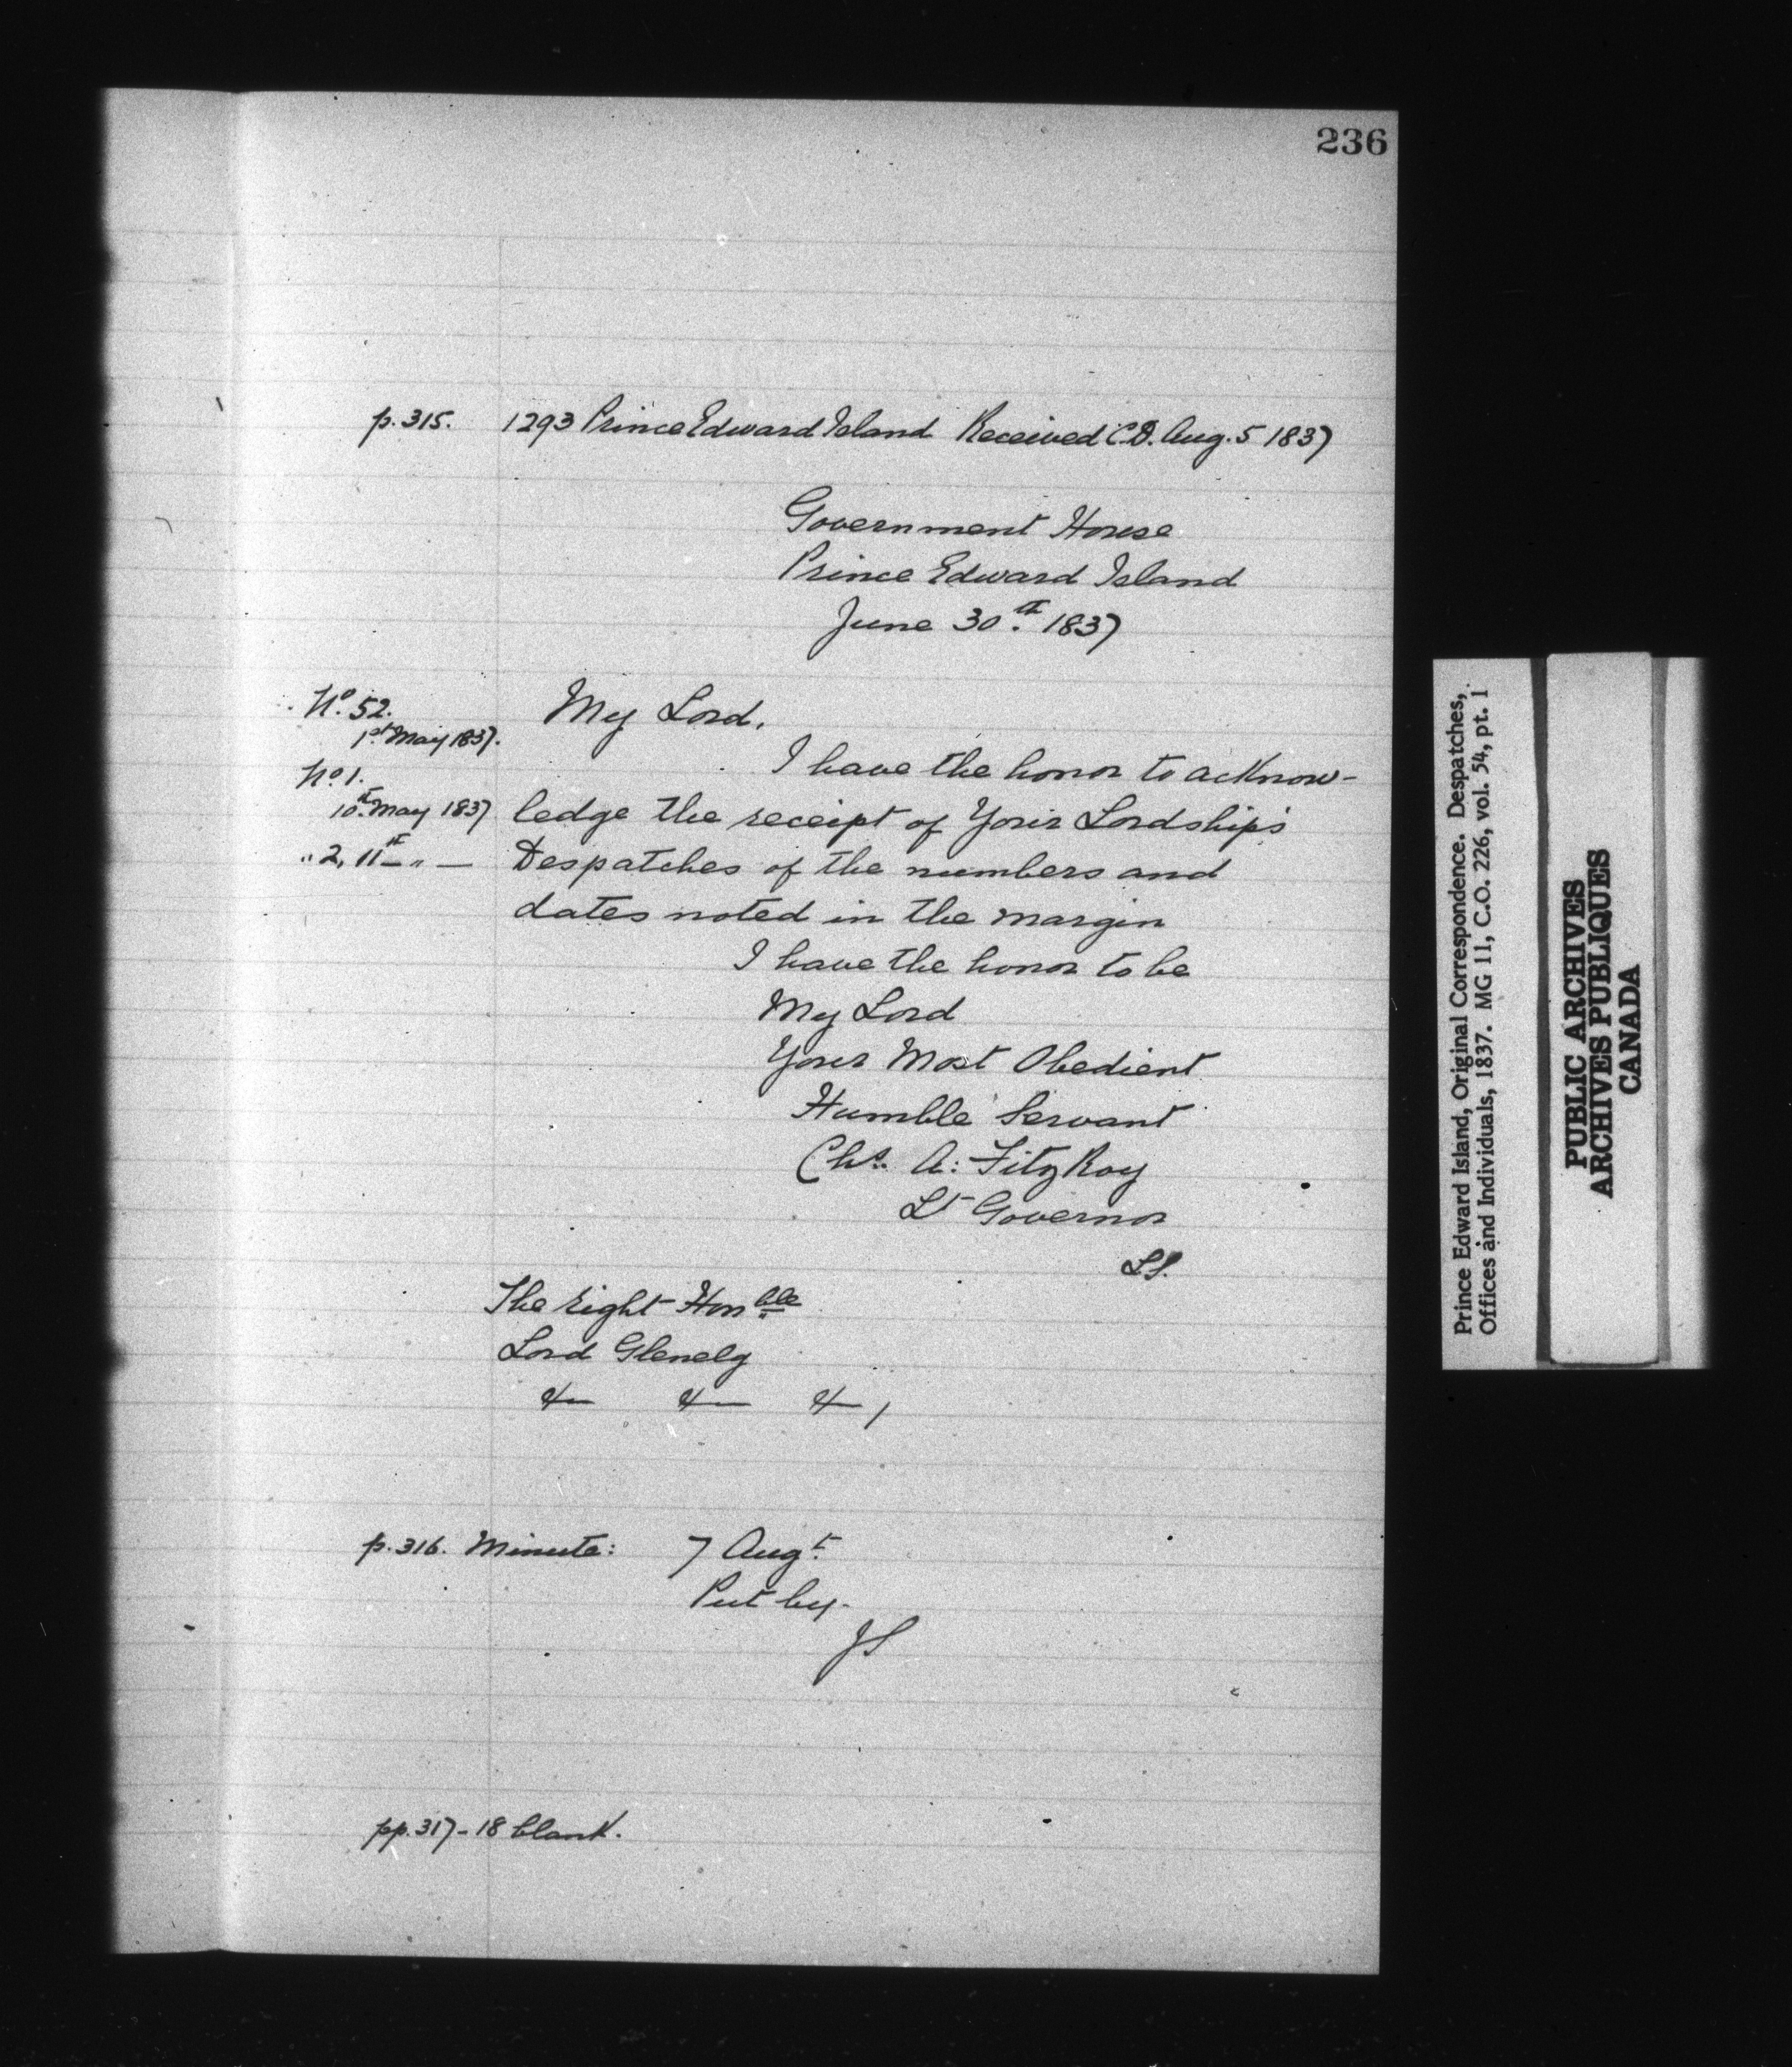 236
p. 315. 1293 Prince Edward Island Received C.D. Aug. 5 1837
Government House
Prince Edward Island
June 30th. 1837
No. 52.
1st May 1837.
My Lord,
No 1.
10th May 1837
" 2, 11th — " —
I have the honor to acknow-
ledge the receipt of Your Lordship's
Despatches of the numbers and
dates noted in the margin
I have the honor to be
My Lord
Your Most Obedient
Humble Servant
Chs. A: FitzRoy
Lt Governor
The Right Honble
Lord Glenelg
&c &c &c,
p. 316. Minute: 7 Augt.
Put by.
JS
pp. 317-18 blank.
Prince Edward Island, Original Correspondence. Despatches,
Offices and Individuals, 1837. MG 11, C.O. 226, vol. 54, pt. 1
PUBLIC ARCHIVES
ARCHIVES PUBLIQUES
CANADA